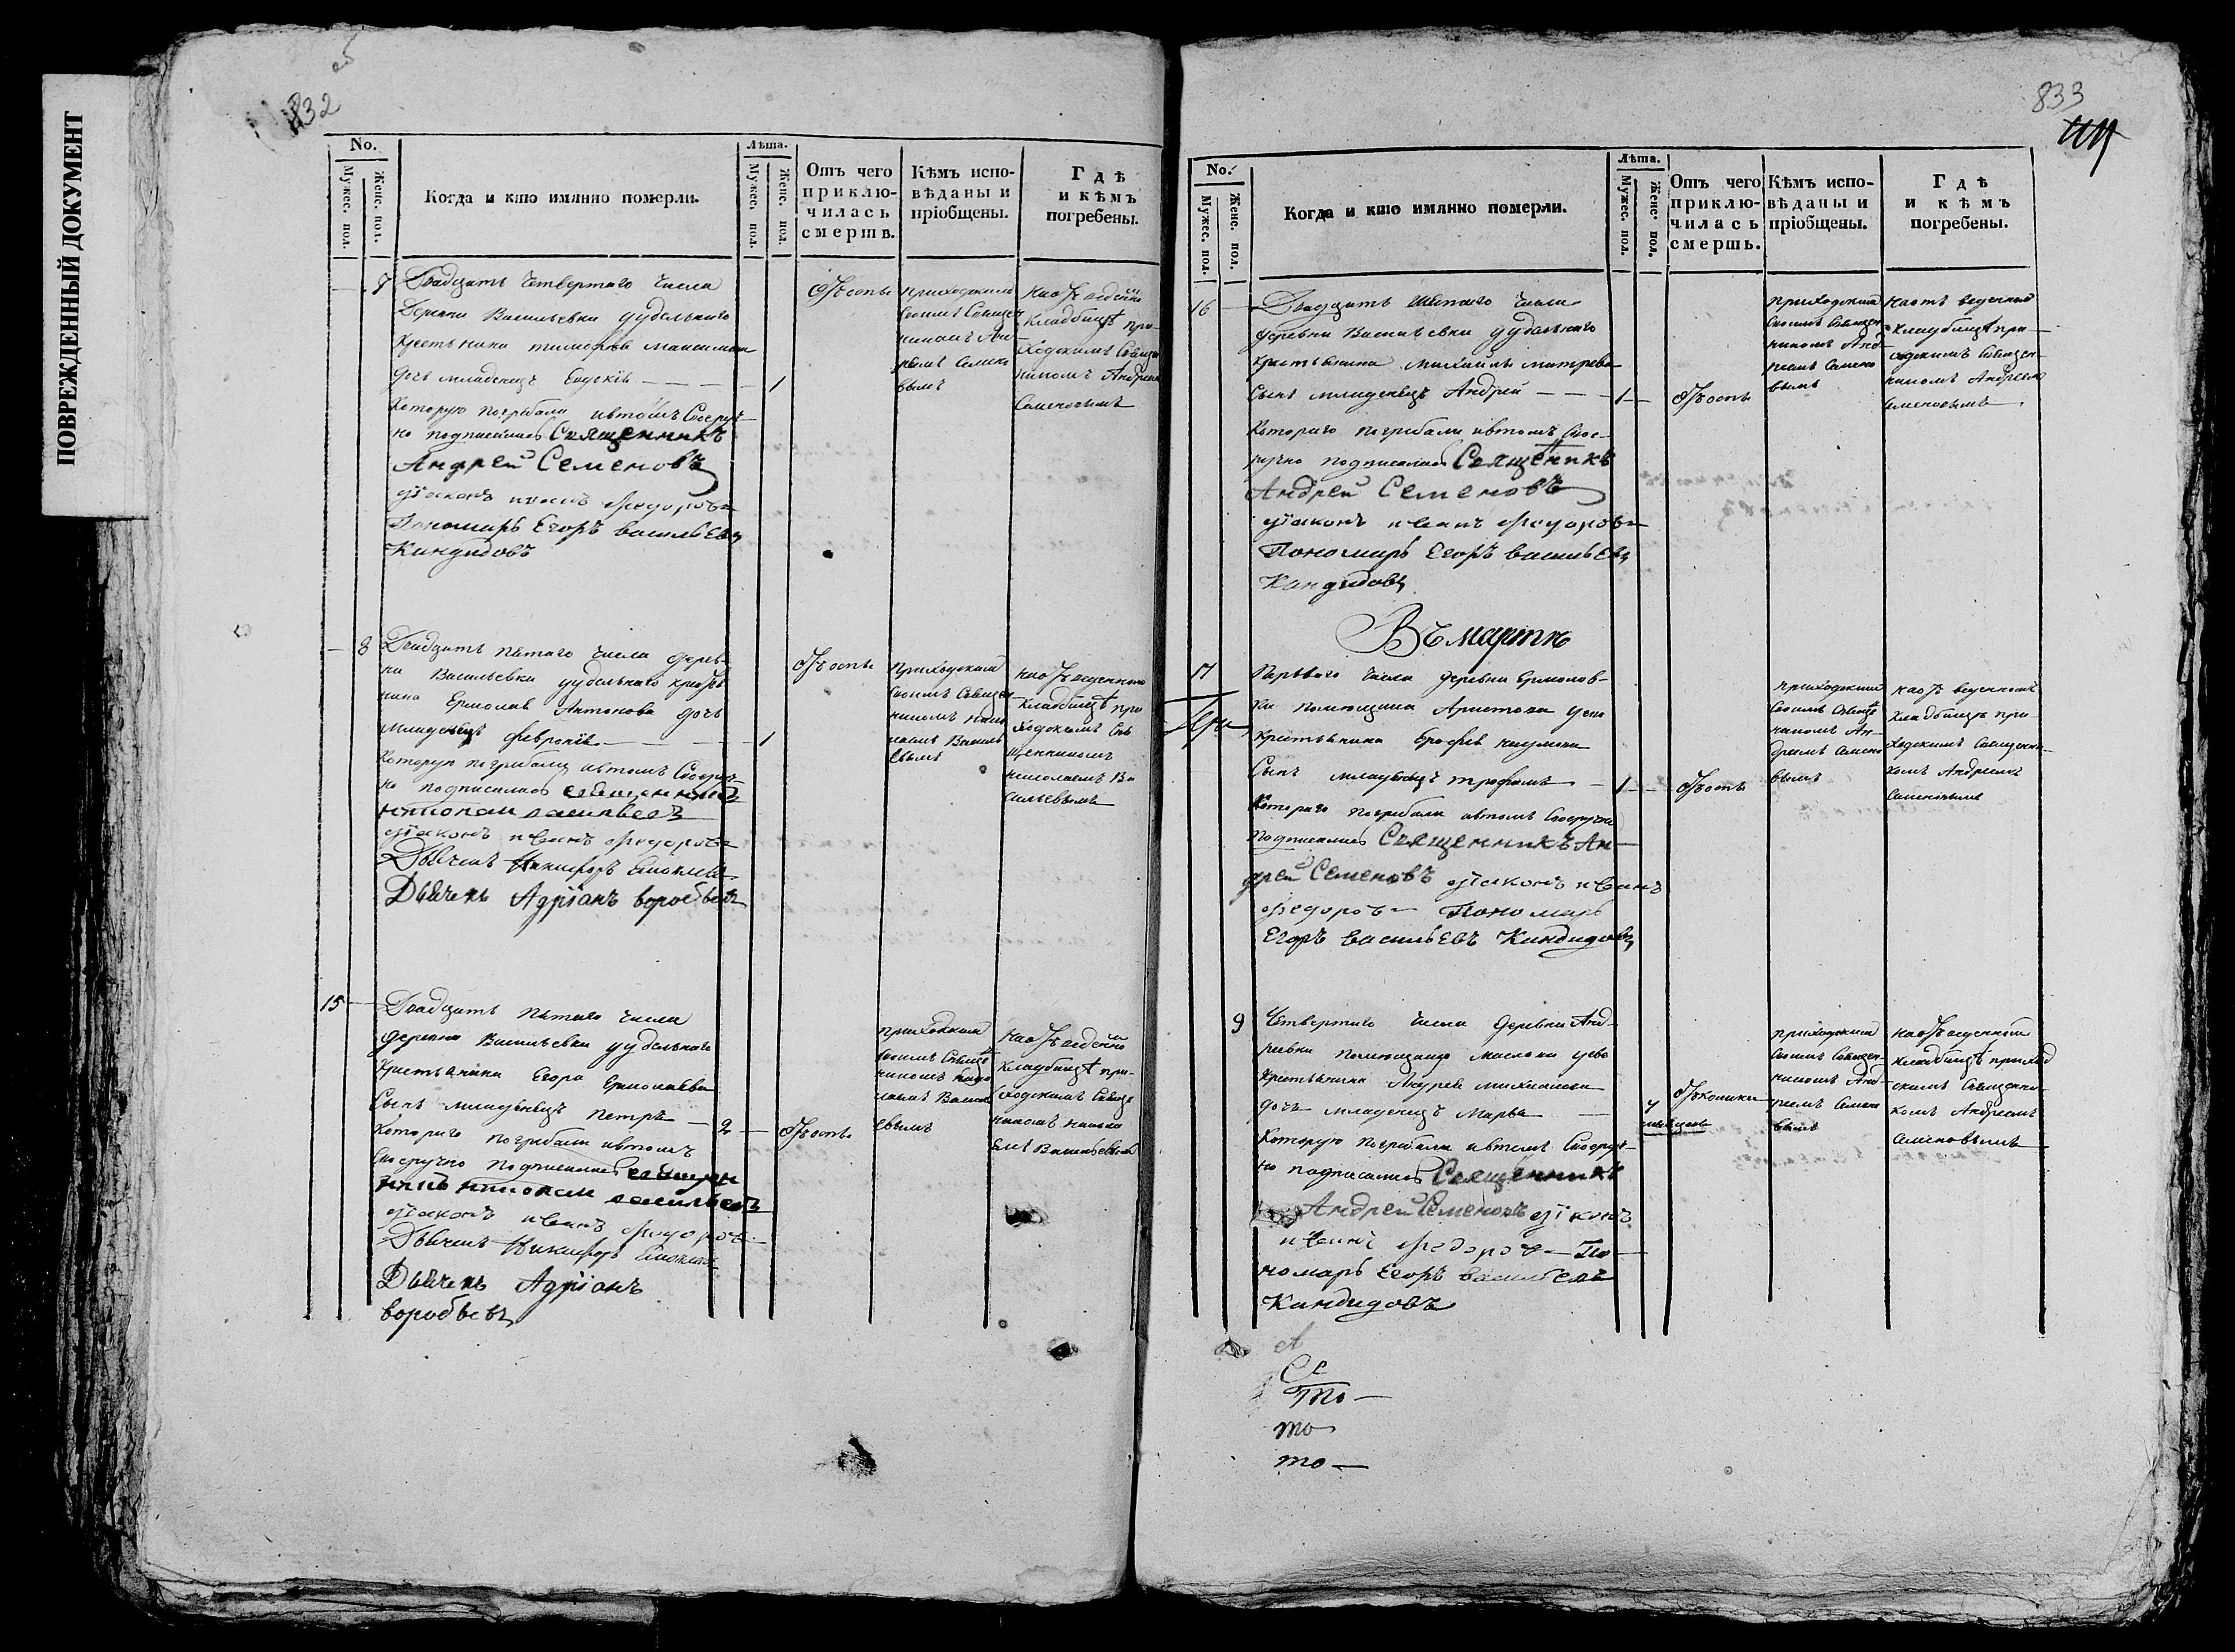 ПОВРЕЖДЕННЫЙ ДОКУМЕНТ
832
No.
Мужес. пол.
Женс. пол.
Когда и кто имянно померли.
Лѣта.
Мужес. пол.
Женс. пол.
Отъ чего
приклю-
чилась
смерть.
Кѣмъ испо-
вѣданы и
пріобщены.
Гдѣ
и кѣмъ
погребены.
7
Двадцать четвертаго числа
Деревни Васильевки удѣльнаго
крестьянина тимофея максимова
дочь младенецъ Евдокія
1
которую погребали и втомъ Своеруч-
но подписались Священникъ
Андрей Семеновъ
діаконъ иванъ Федоровъ
Пономарь Егоръ васильевъ
Кандидовъ
Отъ оспы
приходскимъ
своимъ Священ-
никомъ Ан-
реемъ Семено
вымъ
на отведенно
кладбищѣ при-
ходскимъ Священ
никомъ Андреемъ
Семеновымъ
8
Двадцать пятаго числа дерев-
ни Васильевки удѣльнаго кресть
янина Ермолая Антонова дочь
младенецъ февронія
1
которую погребали и втомъ Своеруч-
но подписались священникъ
николай васильевъ
діаконъ иванъ Федоровъ
Дьячекъ Никифоръ
Дьячекъ Адріанъ воробьевъ
Отъ оспы
приходскимъ
своимъ Священ-
никомъ нико
лаемъ Василь
евымъ
на отведенномъ
кладбищѣ при
ходскимъ Свя
щенникомъ
николаемъ Ва
сильевымъ
15
Двадцать пятаго числа
деревни Васильевки удѣльнаго
крестьянина Егора Ермолаева
Сынъ младенецъ петръ
2
котораго погребали и втомъ
своеручно подписались священ
никъ николай васильевъ
діаконъ иванъ Федоровъ
Дьячекъ Никифоръ
Дьячекъ Адріанъ
воробьевъ
Отъ оспы
приходскимъ
своимъ Священ
никомъ нико
лаемъ Василь
евымъ
на отведенно
кладбищѣ при-
ходскимъ Священ
никомъ никола
емъ Васильевымъ
833
No.
Мужес. пол.
Женс. пол.
Когда и кто имянно померли.
Лѣта.
Мужес. пол.
Женс. пол.
Отъ чего
приклю-
чилась
смерть.
Кѣмъ испо-
вѣданы и
пріобщены.
Гдѣ
и кѣмъ
погребены.
16
Двадцать шестаго числа
деревни Васильевки удѣльнаго
крестьянина михайлы
Сынъ младенецъ Андрей
1
котораго погребали и втомъ Свое-
ручно подписались Священникъ
Андрей Семеновъ
діаконъ иванъ Федоровъ
Пономарь Егоръ васильевъ
Кандидовъ
Отъ оспы
приходскимъ
своимъ Священ-
никомъ Анд-
реемъ Семено
вымъ
на отъ веденно
кладбищѣ при-
ходскимъ Священ-
никомъ Андреемъ
Семеновымъ
Въ мартѣ
17
Перьваго числа деревни Ермолов-
ки помещика
крестьянина наумова
Сынъ младенецъ трофимъ
1
котораго погребали и втомъ Своеручно
подписались Священникъ Ан-
дрей Семеновъ діаконъ иванъ
Федоровъ Пономарь
Егоръ васильевъ Кандидовъ
Отъ оспы
приходскимъ
своимъ Священ
никомъ Ан-
дреемъ Семено
вымъ
на отъ веденномъ
кладбищѣ при-
ходскимъ Священни-
комъ Андреемъ
Семеновымъ
9
Четвертаго числа деревни Анд-
реевки
крестьянина Андрея михайлова
дочь младенецъ Марья
которую погребали и втомъ Своеруч-
но подписались Священникъ
Андрей Семеновъ діаконъ
иванъ Федоровъ По-
номарь Егоръ васильевъ
Кандидовъ
приходскимъ
своимъ Священ-
никомъ Анд-
реемъ Семено
вымъ
на отъ веденномъ
кладбищѣ приход
скимъ Священни-
комъ Андреемъ
Семеновымъ
Се
то
то
то